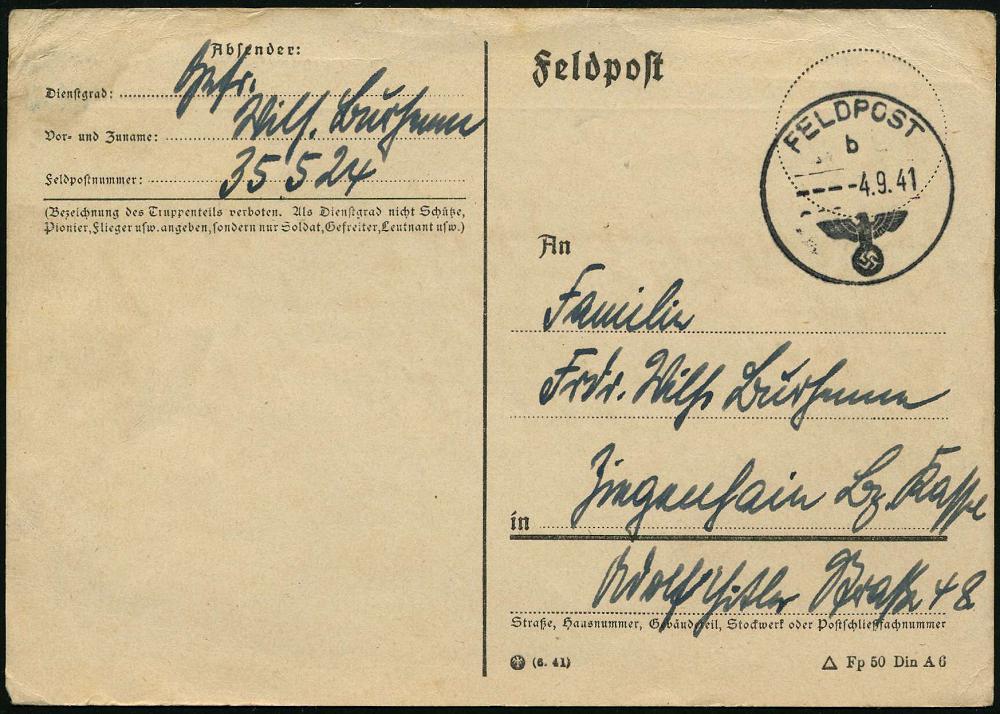 Absender:
Dienstgrad: Gefr.
Vor- und Zuname: Wilh. Burhenne
Feldpostnummer: 35 524
(Bezeichnung des Truppenteils verboten. Als Dienstgrad nicht Schütze,
Pionier, Flieger usw. angeben, sondern nur Soldat, Gefreiter, Leutnant usw.)
Feldpost
FELDPOST
b
-4.9.41
An
Familie
Frdr. Wilh. Burhenne
Ziegenhain Bz. Kassel
in
Adolf Hitler Straße 48
Straße, Hausnummer, Gebäudeteil, Stockwerk oder Postschließfachnummer
(6. 41)
Fp 50 Din A 6